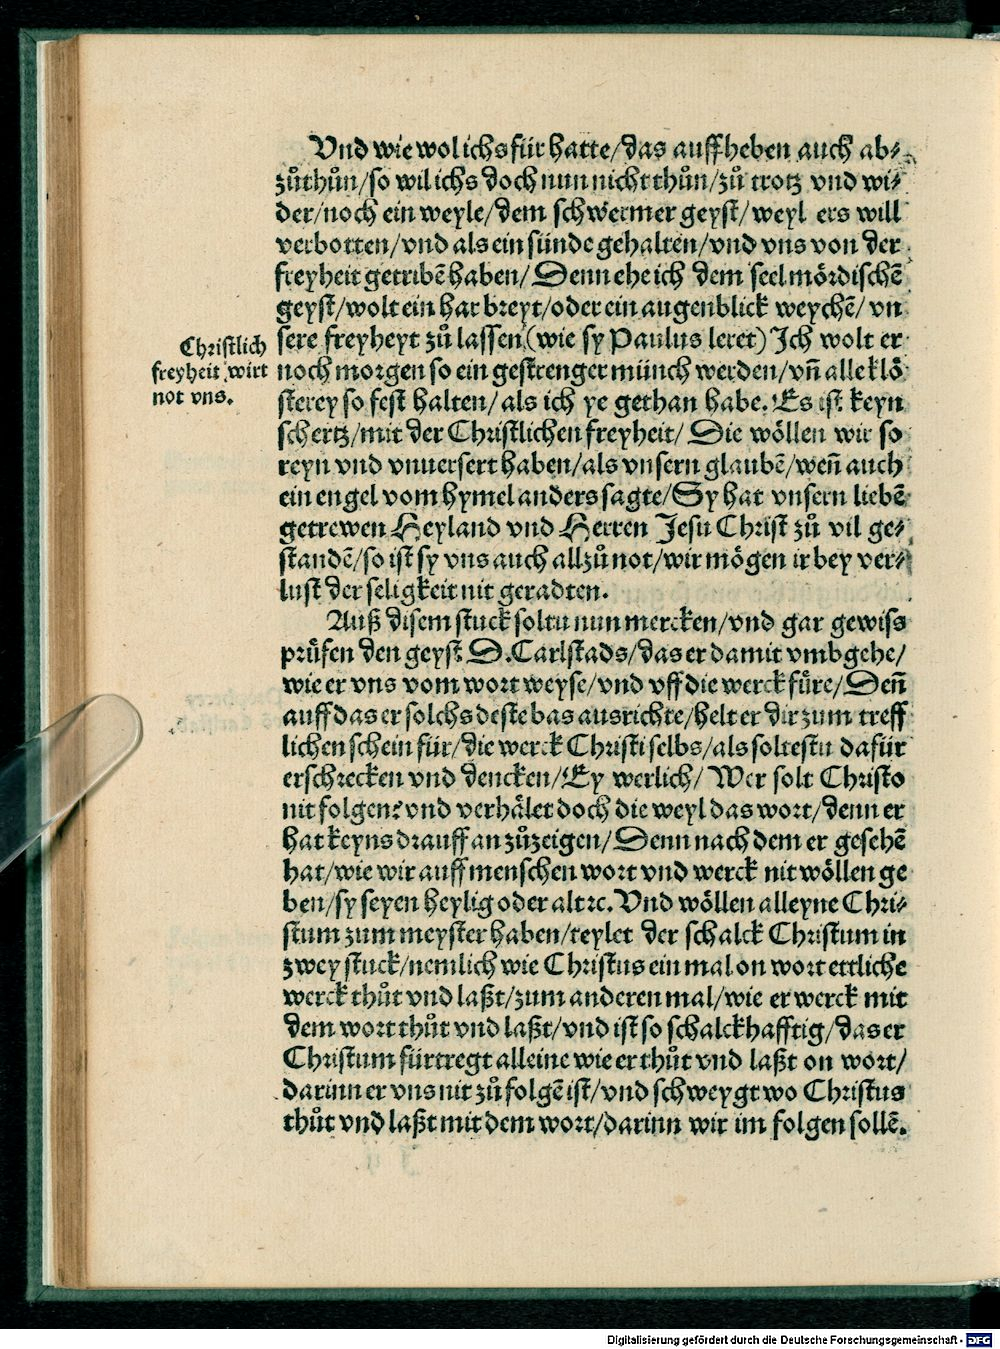 Vnd wie wol ichs für hatte/das auffheben auch ab⸗
zůthůn/so wil ichs doch nun nicht thůn/zů trotz vnd wi⸗
der/noch ein weyle/dem schwermer geyst/weyl ers will
verbotten/vnd als ein sünde gehalten/vnd vns von der
freyheit getribē haben/Denn ehe ich dem seelmördischē
geyst/wolt ein har breyt/oder ein augenblick weychē/vn
sere freyheyt zů lassen (wie sy Paulus leret) Ich wolt er
noch morgen so ein gestrenger münch werden/vñ alle klö
sterey so fest halten/als ich ye gethan habe. Es ist keyn
schertz/mit der Christlichen freyheit/Die wöllen wir so
reyn vnd vnuersert haben/als vnsern glaubē/weñ auch
ein engel vom hymel anders sagte/Sy hat vnsern liebē
getrewen Heyland vnd Herren Jesu Christ zů vil ge⸗
standē/so ist sy vns auch allzů not/wir mögen ir bey ver⸗
lust der seligkeit nit geradten.
Christlich
freyheit wirt
not vns.
Auß disem stuck soltu nun mercken/vnd gar gewiss
prüfen den geyst D. Carlstads/das er damit vmbgehe/
wie er vns vom wort weyse/vnd vff die werck füre/Deñ
auff das er solchs deste bas ausrichte/helt er dir zum treff
lichen schein für/die werck Christi selbs/als soltestu dafür
erschrecken vnd dencken/Ey werlich/Wer solt Christo
nit folgen? vnd verhälet doch die weyl das wort/denn er
hat keyns drauff an zůzeigen/Denn nach dem er gesehē
hat/wie wir auff menschen wort vnd werck nit wöllen ge
ben/sy seyen heylig oder alt ꝛc. Vnd wöllen alleyne Chri⸗
stum zum meyster haben/teylet der schalck Christum in
zwey stuck/nemlich wie Christus ein mal on wort ettliche
werck thůt vnd laßt/zum anderen mal/wie er werck mit
dem wort thůt vnd laßt/vnd ist so schalckhafftig/das er
Christum fürtregt alleine wie er thůt vnd laßt on wort/
darinn er vns nit zů folgē ist/vnd schweygt wo Christus
thůt vnd laßt mit dem wort/darinn wir im folgen sollē.
Digitalisierung gefördert durch die Deutsche Forschungsgemeinschaft - DFG